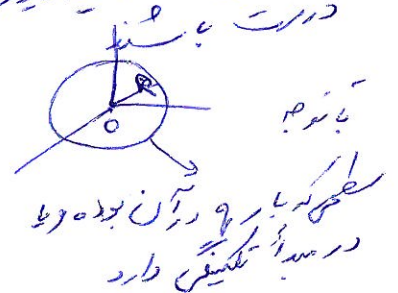 درست باشند
R
O
با توجه
سطحی که بار q در آن بوده و یا
در مبدأ تکینگی دارد